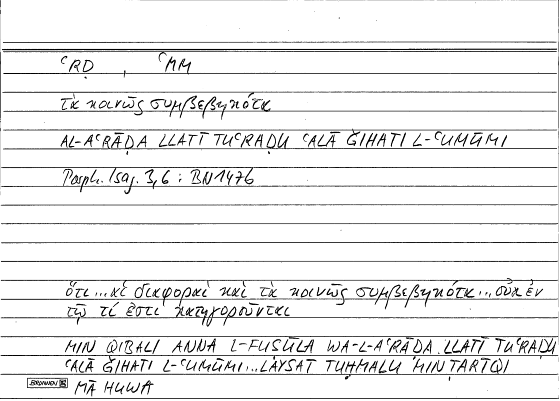 ʿRḌ , ʿMM
τὰ κοινῶς συμβεβηκότα
AL-AʿRĀḌA LLATĪ TUʿRAḌU ʿALĀ ǦIHATI L-ʿUMŪMI
Porph. Isag. 3,6 : BN1476
ὅτι...αἱ διαφοραὶ καὶ τὰ κοινῶς συμβεβηκότα...οὐκ ἐν
τῷ τί ἐστι κατηγοροῦνται
MIN QIBALI ANNA L-FUṢŪLA WA-L-AʿRĀḌA LLATĪ TUʿRAḌU
ʿALĀ ǦIHATI L-ʿUMŪMI...LAYSAT TUḤMALU MIN ṬARĪQI
MĀ HUWA
BRUNNEN